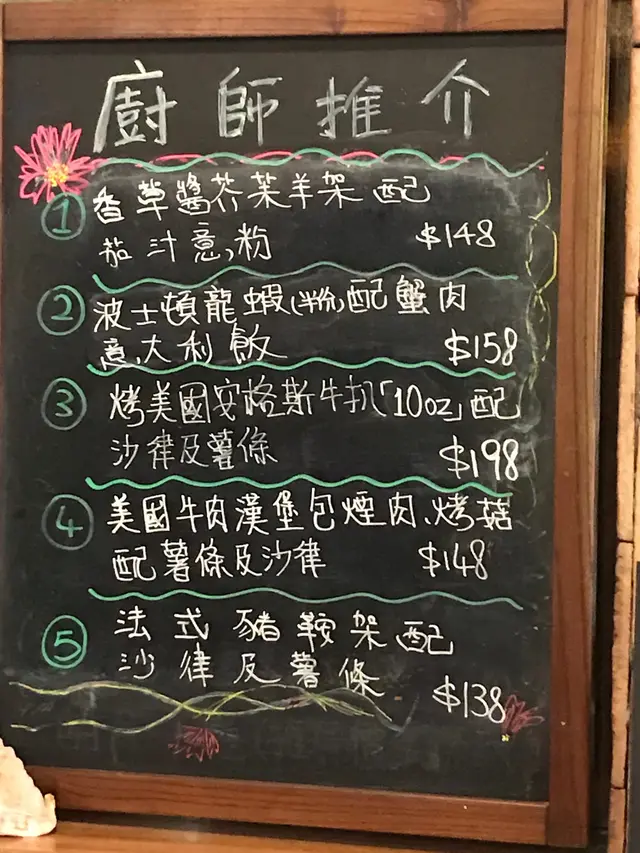 廚師推介
① 香草醬芥茉羊架配
茄汁意粉 $148
② 波士頓龍蝦(半粉)配蟹肉
意大利飯 $158
③ 烤美國安格斯牛扒「10oz」配
沙律及薯條 $198
④ 美國牛肉漢堡包煙肉、烤菇
配薯條及沙律 $148
⑤ 法式豬鞍架配
沙律及薯條 $138